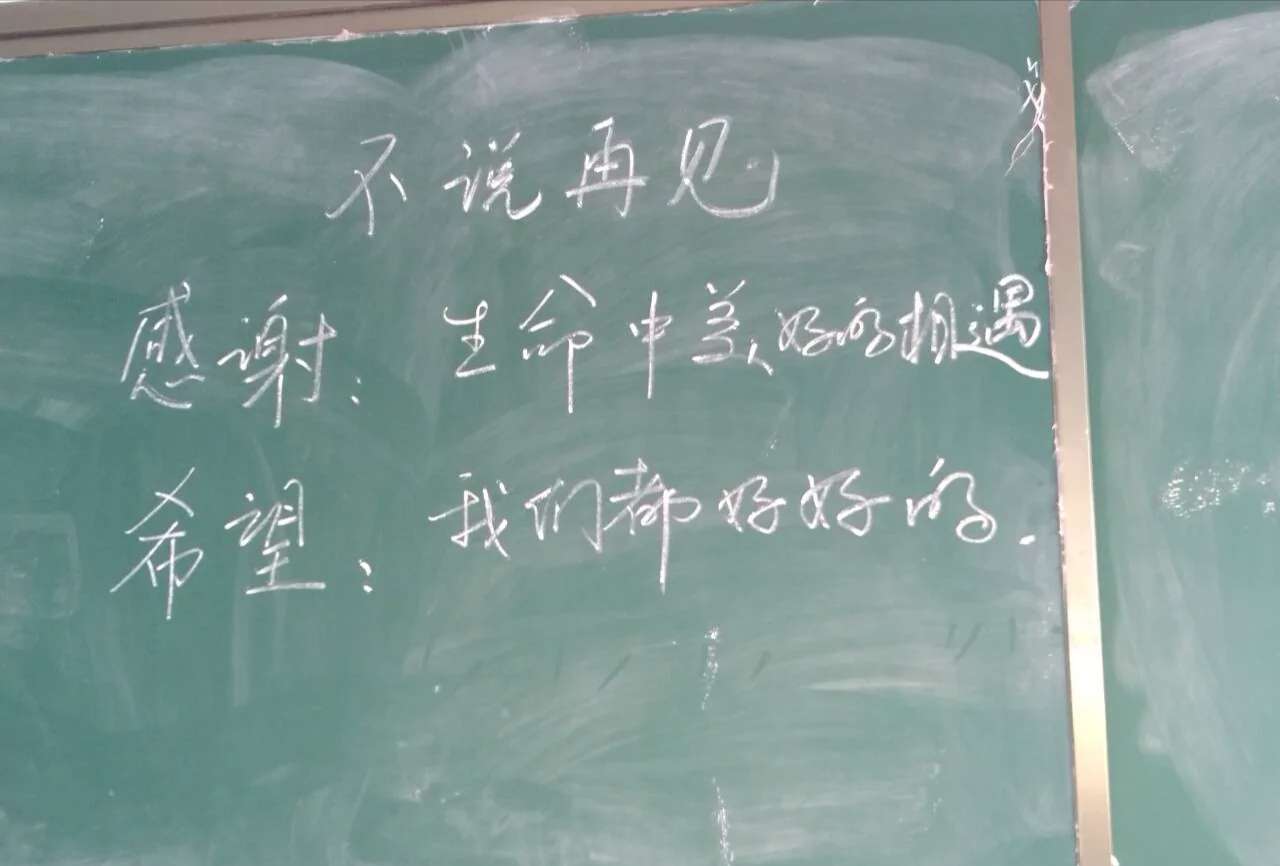 不说再见
感谢: 生命中美好的相遇
希望: 我们都好好的.